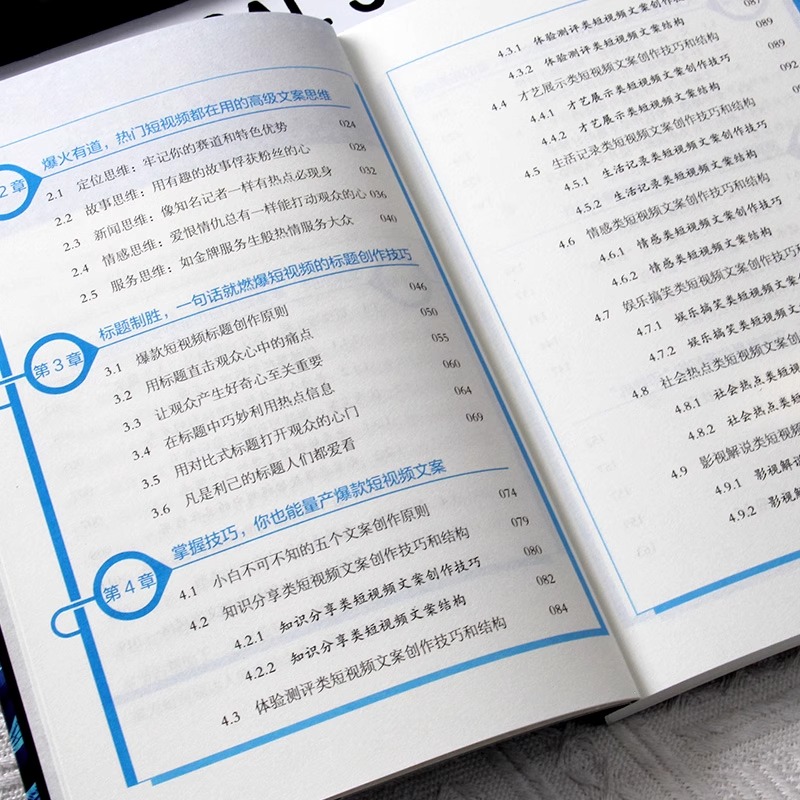 2 章
爆火有道，热门短视频都在用的高级文案思维
2.1 定位思维：牢记你的赛道和特色优势 024
2.2 故事思维：用有趣的故事俘获粉丝的心 028
2.3 新闻思维：像知名记者一样有热点必现身 032
2.4 情感思维：爱恨情仇总有一样能打动观众的心 036
2.5 服务思维：如金牌服务生般热情服务大众 040
第 3 章
标题制胜，一句话就燃爆短视频的标题创作技巧
3.1 爆款短视频标题创作原则 046
3.2 用标题直击观众心中的痛点 050
3.3 让观众产生好奇心至关重要 055
3.4 在标题中巧妙利用热点信息 060
3.5 用对比式标题打开观众的心门 064
3.6 凡是利己的标题人们都爱看 069
第 4 章
掌握技巧，你也能量产爆款短视频文案
4.1 小白不可不知的五个文案创作原则 074
4.2 知识分享类短视频文案创作技巧和结构 079
4.2.1 知识分享类短视频文案创作技巧 080
4.2.2 知识分享类短视频文案结构 082
4.3 体验测评类短视频文案创作技巧和结构 084
4.3.1 体验测评类短视频文案创作
4.3.2 体验测评类短视频文案结构 087
4.4 才艺展示类短视频文案创作技巧和结构 089
4.4.1 才艺展示类短视频文案创作技巧 089
4.4.2 才艺展示类短视频文案结构 092
4.5 生活记录类短视频文案创作技巧和结构
4.5.1 生活记录类短视频文案创作技巧
4.5.2 生活记录类短视频文案结构
4.6 情感类短视频文案创作技巧和结构
4.6.1 情感类短视频文案创作技巧
4.6.2 情感类短视频文案结构
4.7 娱乐搞笑类短视频文案创作技巧和
4.7.1 娱乐搞笑类短视频文案创
4.7.2 娱乐搞笑类短视频文案
4.8 社会热点类短视频文案创
4.8.1 社会热点类短视频
4.8.2 社会热点类短视
4.9 影视解说类短视频
4.9.1 影视解说
4.9.2 影视解